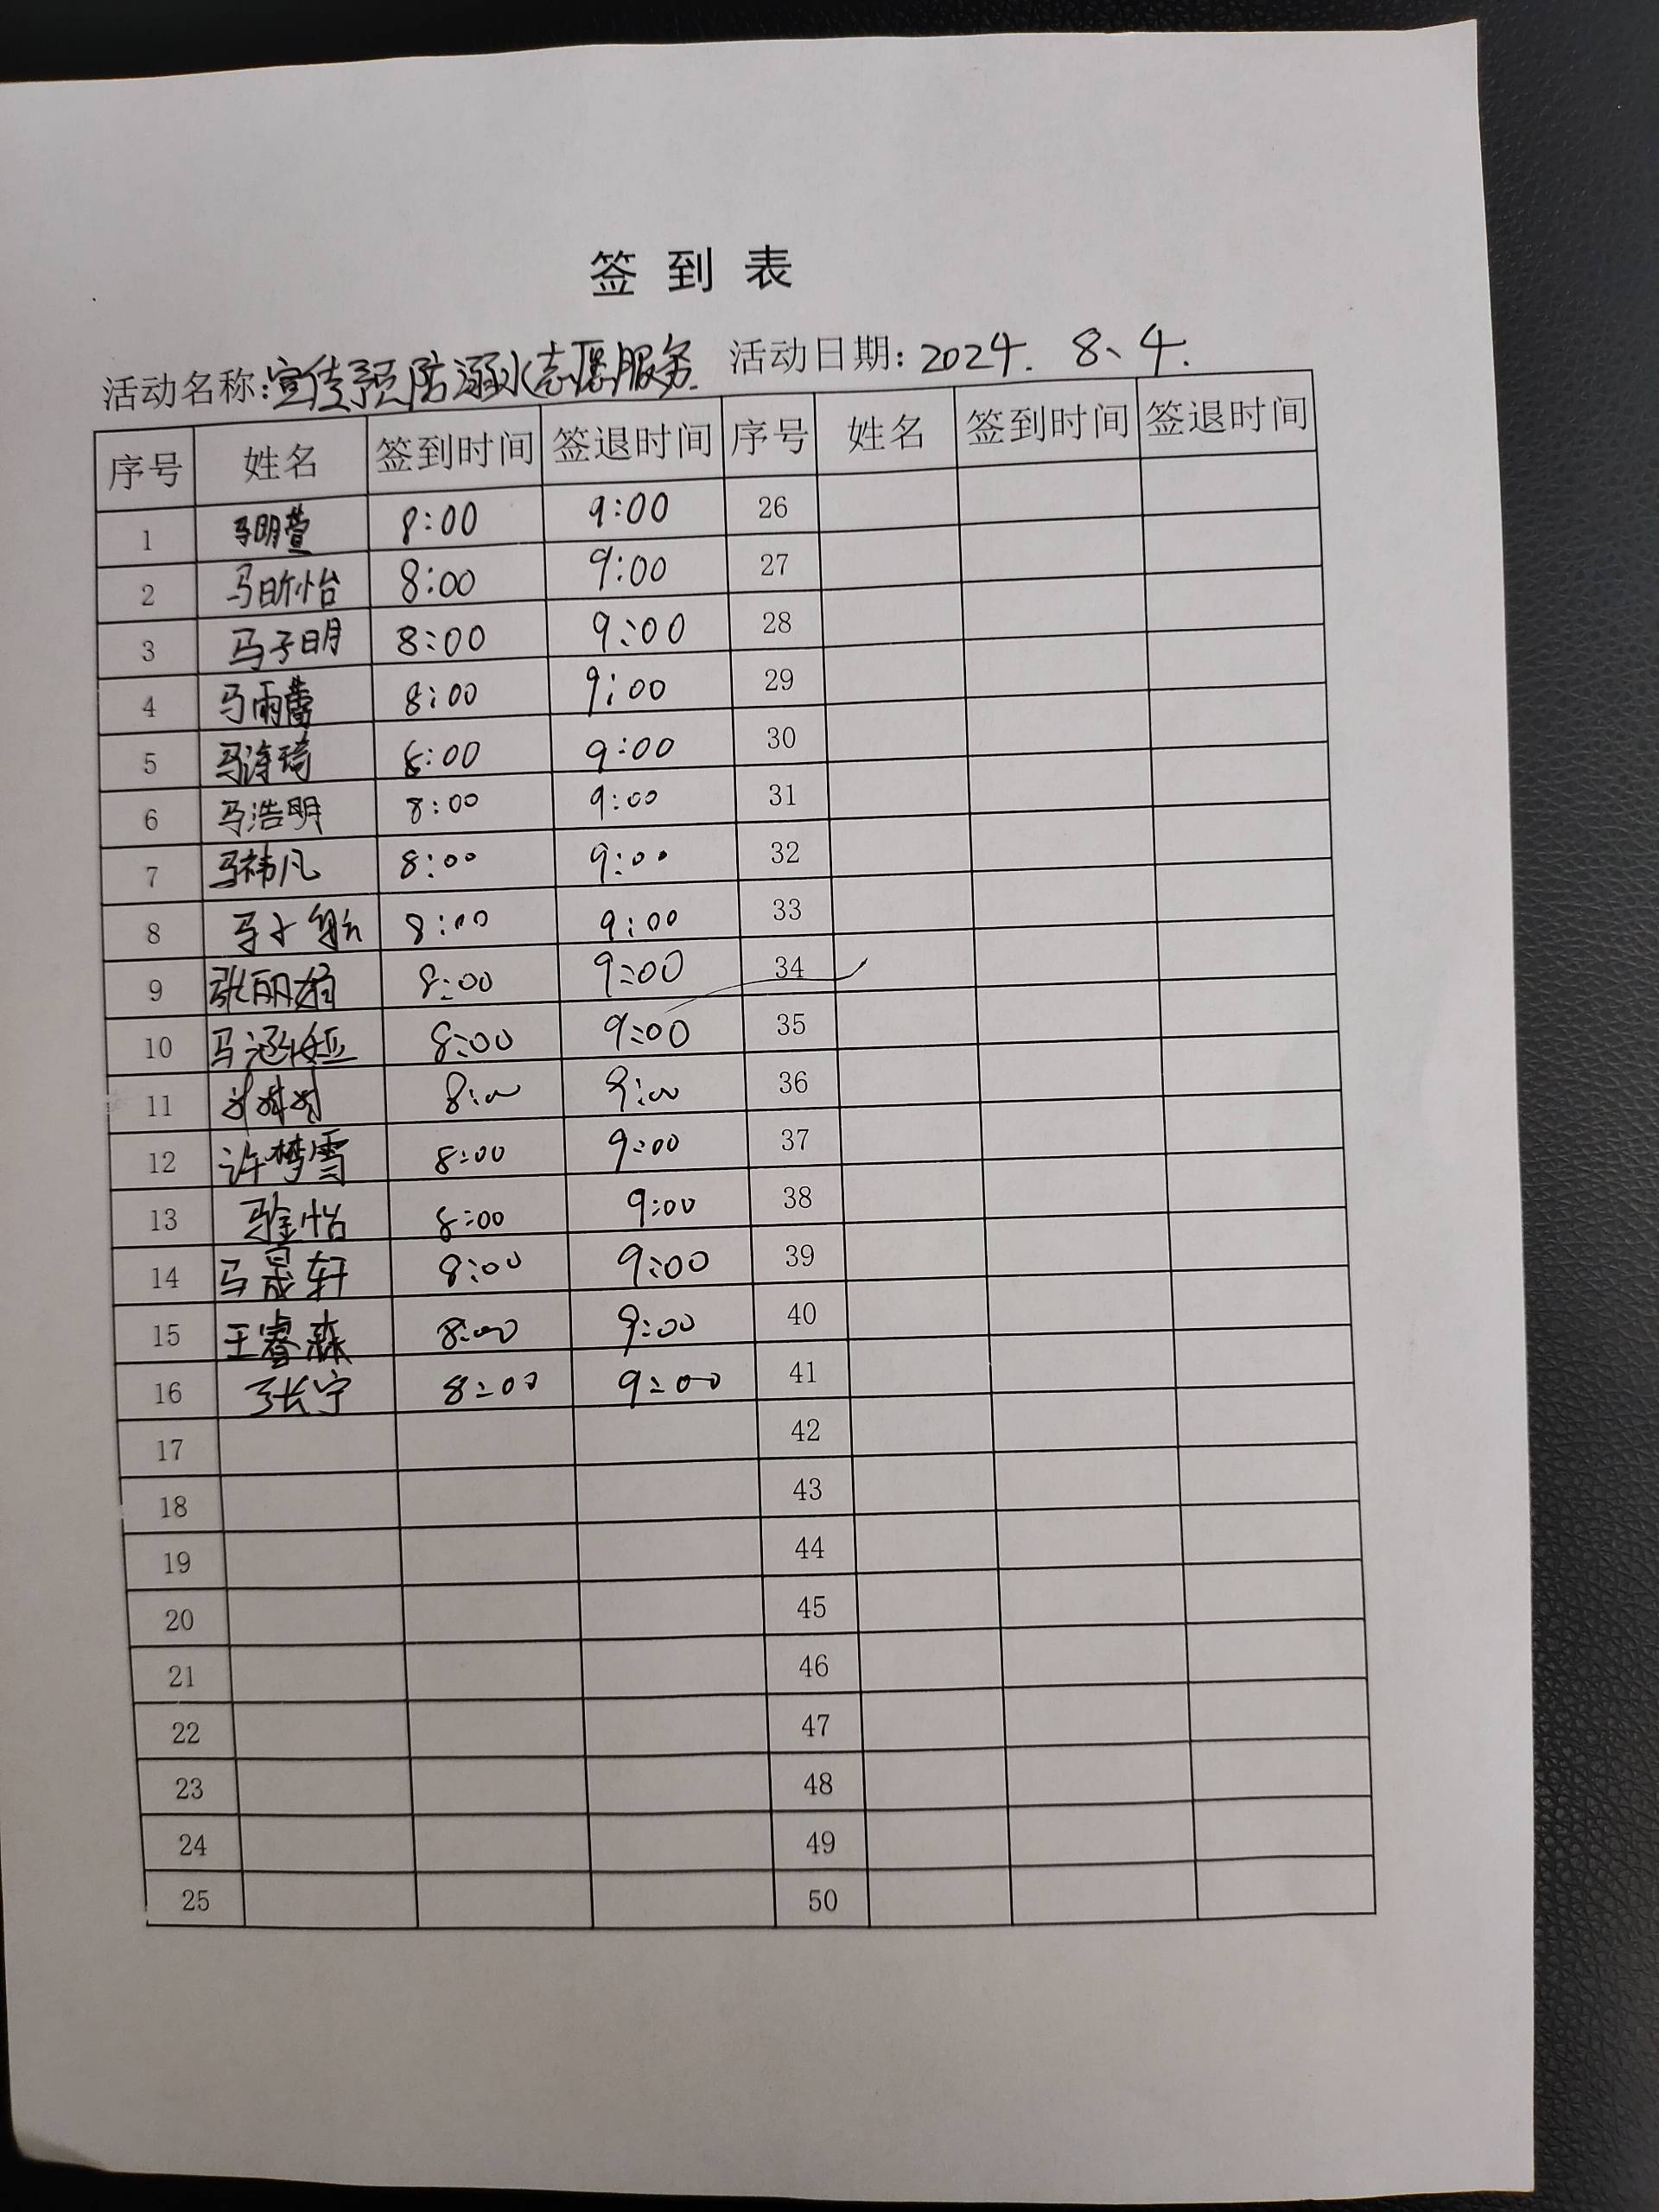 签到表
活动名称:宣传预防溺水志愿服务 活动日期:2024.8、4.
序号 姓名 签到时间 签退时间 序号 姓名 签到时间 签退时间
1 马明萱 8:00 9:00 26
2 马昕怡 8:00 9:00 27
3 马子明 8:00 9:00 28
4 马雨蕾 8:00 9:00 29
5 马诗琦 8:00 9:00 30
6 马浩明 8:00 9:00 31
7 马祎凡 8:00 9:00 32
8 马 8:00 9:00 33
9 张丽 8:00 9:00 34
10 马涵 8:00 9:00 35
11 8:00 9:00 36
12 许梦雪 8:00 9:00 37
13 马金怡 8:00 9:00 38
14 马晟轩 8:00 9:00 39
15 王睿森 8:00 9:00 40
16 张宁 8:00 9:00 41
17 42
18 43
19 44
20 45
21 46
22 47
23 48
24 49
25 50